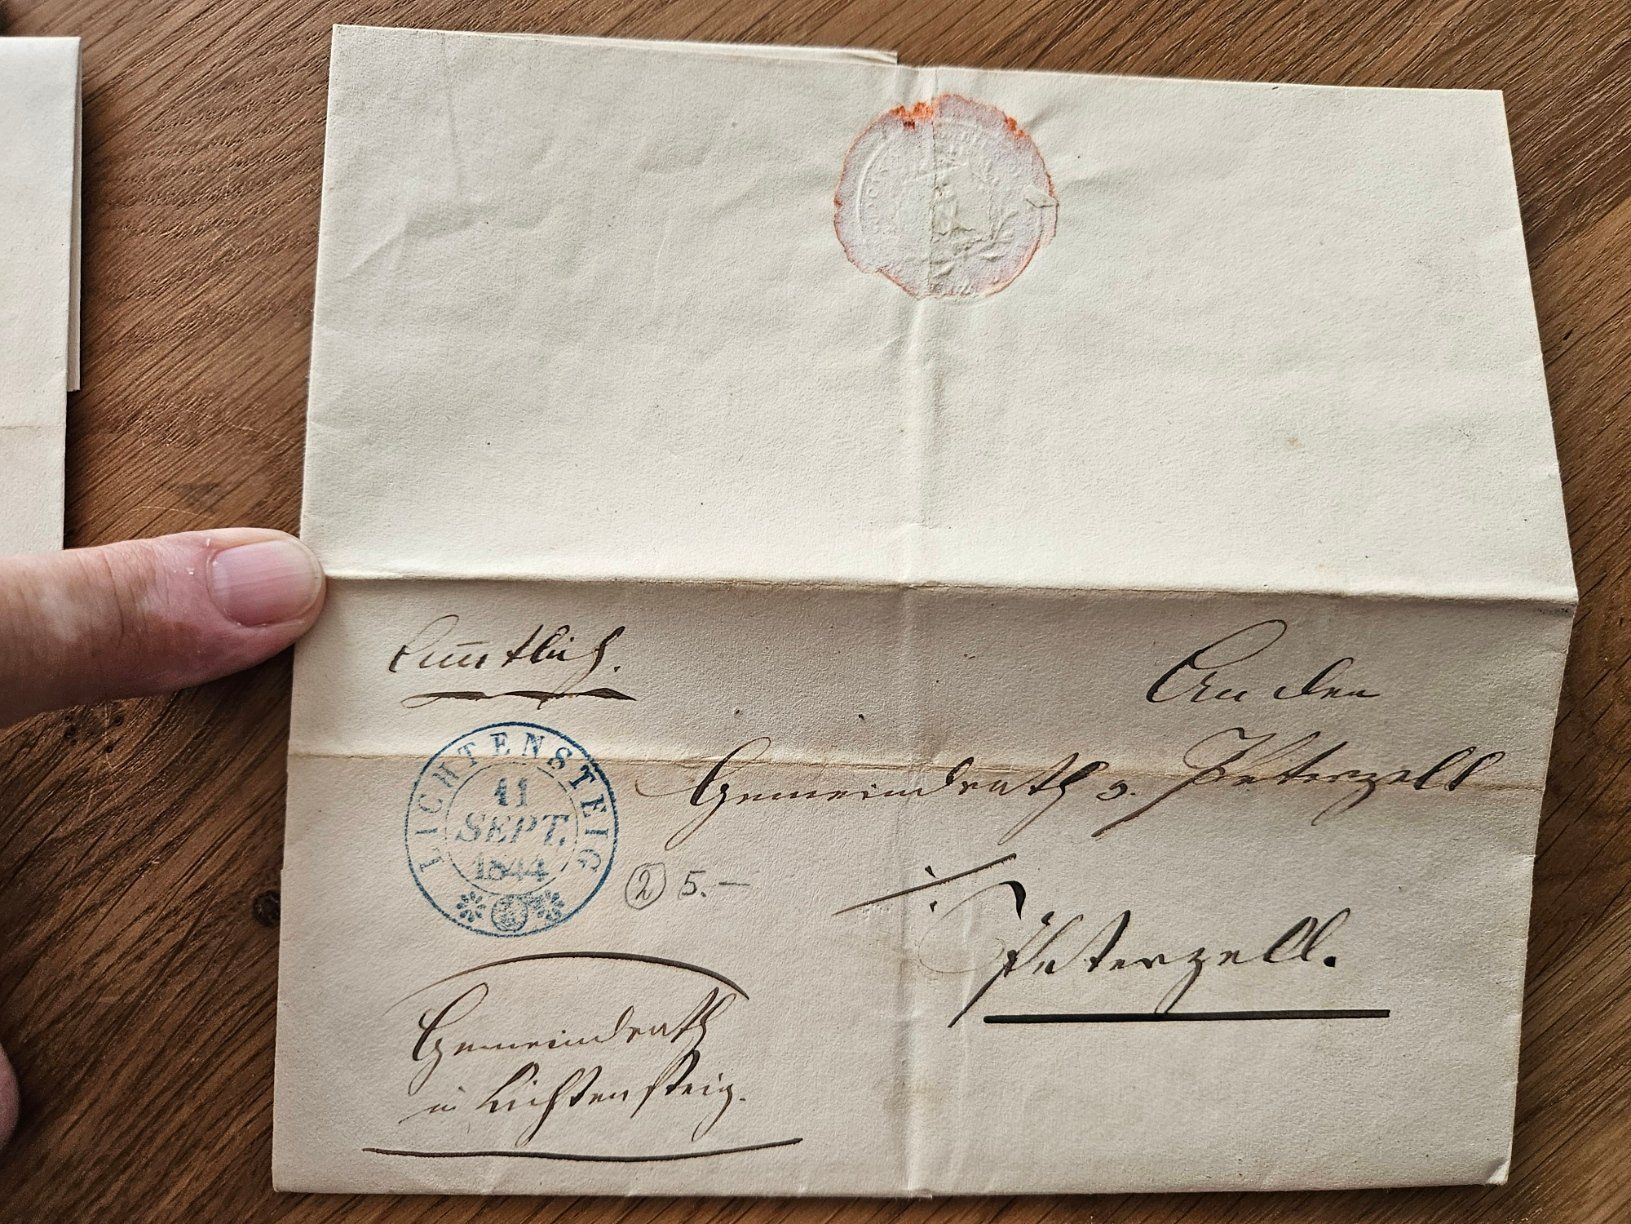 Amtlich.
An den
Gemeindrath v. Peterzell
LICHTENSTEIG
11
SEPT.
1844
2 5.–
Peterzell.
Gemeindrath
in Lichtensteig.